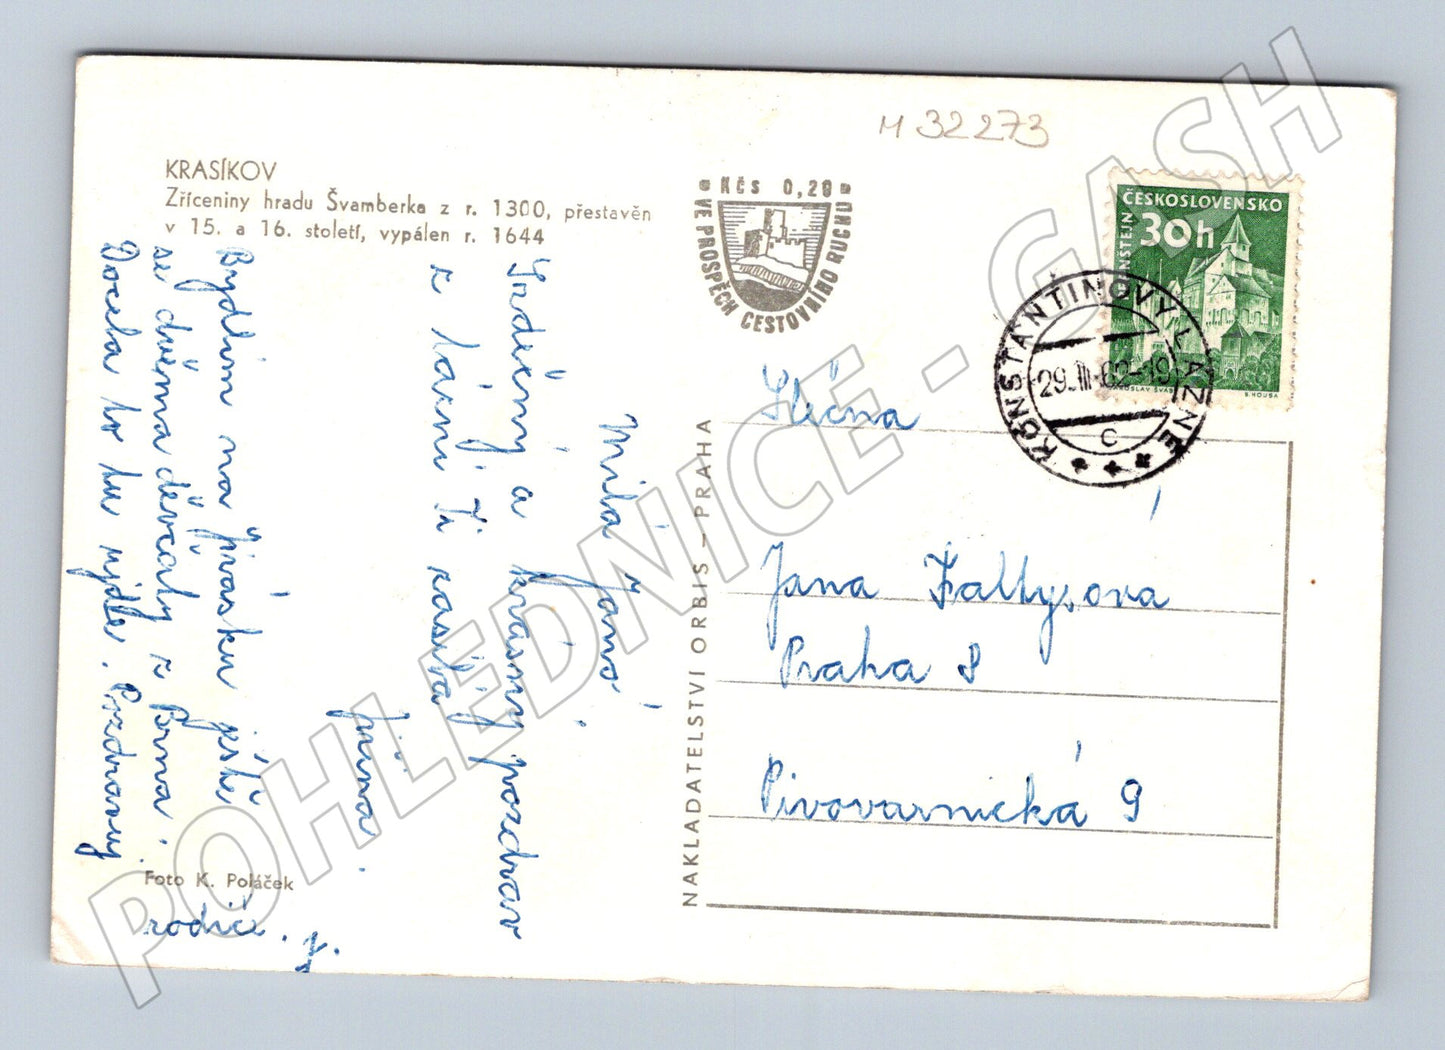 M 32273
KRASÍKOV
Zříceniny hradu Švamberka z r. 1300, přestavěn
v 15. a 16. století, vypálen r. 1644
KČS 0,20
VE PROSPĚCH CESTOVNÍHO RUCHU
ČESKOSLOVENSKO
30h
B. HOUSA
KONSTANTINOVY LÁZNĚ
29.III.62-19
c
Milá Jano!
Srdečný a krásný pozdrav
z lázní Ti zasílá
Jiřina.
Bydlím na Špičáku ještě
se dvěma děvčaty z Brna.
Docela to tu ujde. Pozdravuj
rodiče. J.
Foto K. Poláček
NAKLADATELSTVÍ ORBIS – PRAHA
Slečna
Jana Faltysová
Praha 8
Pivovarnická 9
POHLEDNICE - GASH